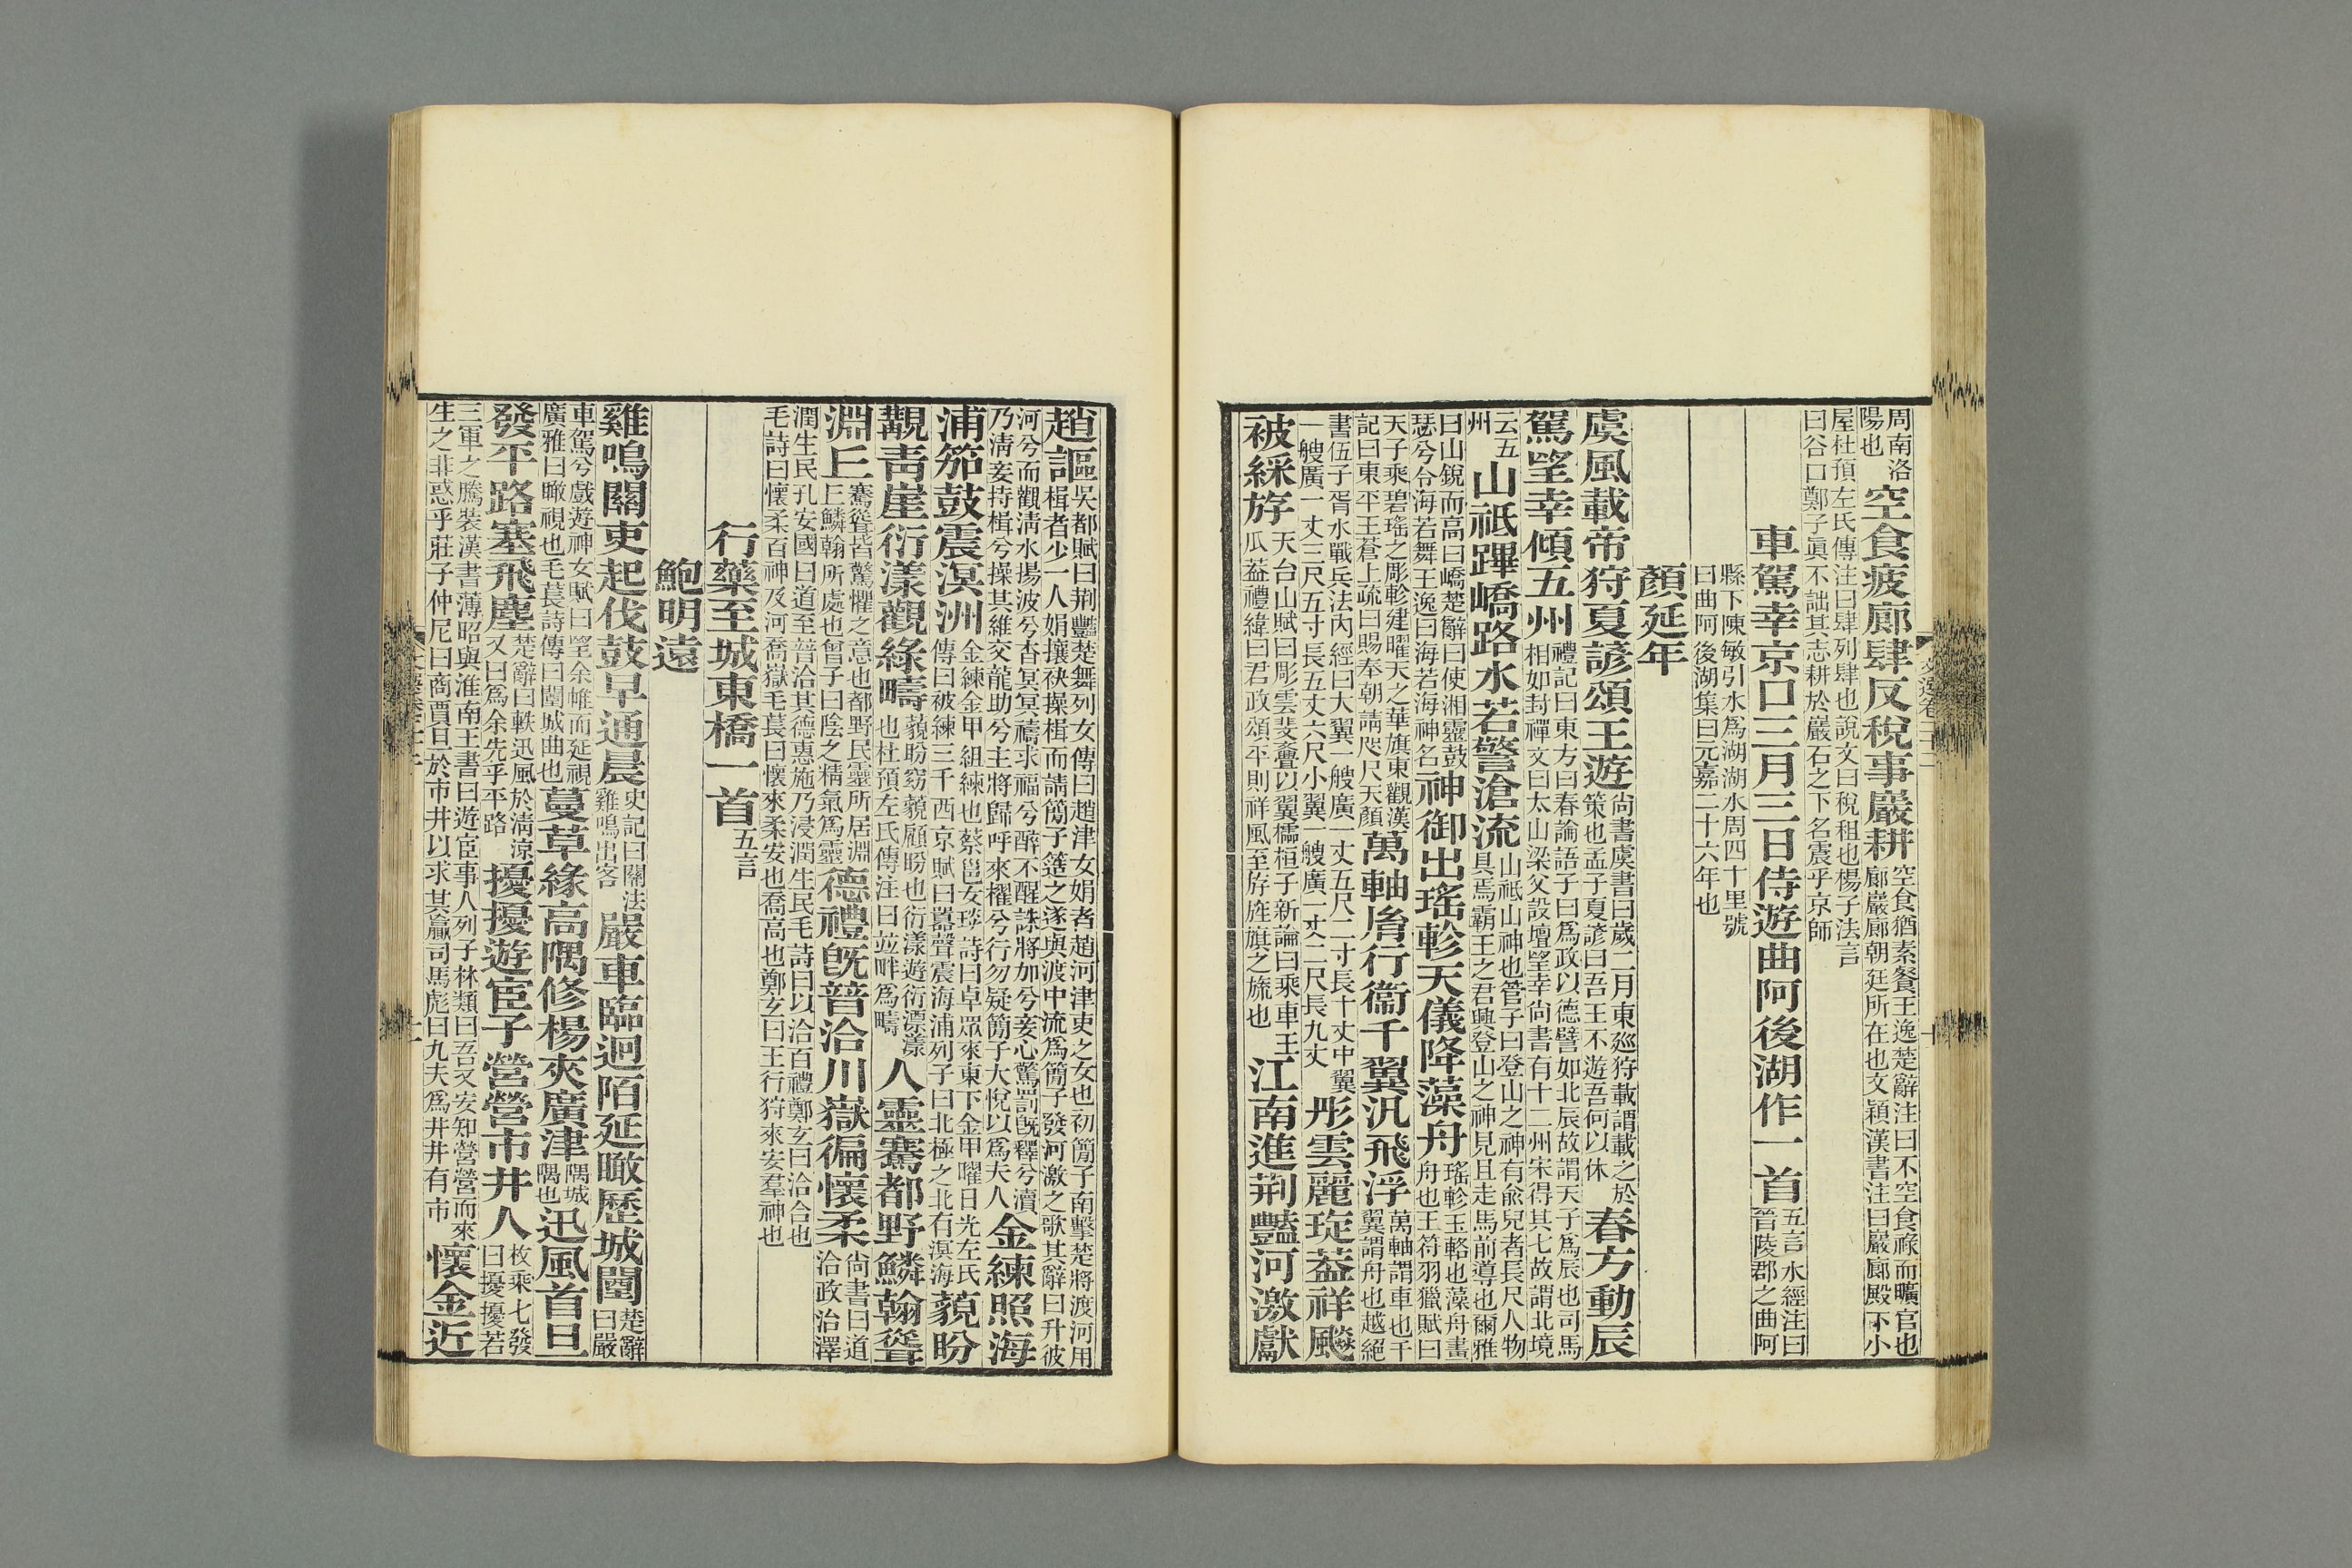 周南洛陽也空食疲廊肆反稅事巖耕空食猶素餐王逸楚辭注曰不空食祿而曠官也廊巖廊朝廷所在也文穎漢書注曰巖廊殿下小
屋杜預左氏傳注曰肆列肆也說文曰稅租也楊子法言曰谷口鄭子眞不詘其志耕於巖石之下名震乎京師
車駕幸京口三月三日侍遊曲阿後湖作一首五言水經注曰晉陵郡之曲阿
縣下陳敏引水爲湖湖水周四十里號曰曲阿後湖集曰元嘉二十六年也
顏延年
虞風載帝狩夏諺頌王遊尚書虞書曰歲二月東巡狩載謂載之於策也孟子夏諺曰吾王不遊吾何以休春方動辰
駕望幸傾五州禮記曰東方曰春論語子曰爲政以德譬如北辰故謂天子爲辰也司馬相如封禪文曰太山梁父設壇望幸尚書有十二州宋得其七故謂北境
云五州山祇蹕嶠路水若警滄流山祇山神也管子曰登山之神有兪兒者長尺人物具焉霸王之君興登山之神見且走馬前導也爾雅
曰山銳而高曰嶠楚辭曰使湘靈鼓瑟兮令海若舞王逸曰海若海神名神御出瑤軫天儀降藻舟瑤軫玉輅也藻舟畫舟也王符羽獵賦曰
天子乘碧瑤之彫軫建曜天之華旗東觀漢記曰東平王蒼上疏曰賜奉朝請咫尺天顏萬軸胤行衞千翼汎飛浮萬軸謂車也千翼謂舟也越絕
書伍子胥水戰兵法內經曰大翼一艘廣一丈五尺二寸長十丈中翼一艘廣一丈三尺五寸長五丈六尺小翼一艘廣一丈二尺長九丈彤雲麗琁葢祥飈
被綵斿天台山賦曰彫雲斐亹以翼櫺桓子新論曰乘車玉瓜葢禮緯曰君政頌平則祥風至斿旌旗之旒也江南進荆豔河激獻
趙謳吳都賦曰荆豔楚舞列女傳曰趙津女娟者趙河津吏之女也初簡子南擊楚將渡河用楫者少一人娟攘袂操楫而請簡子簉之遂與渡中流爲簡子發河激之歌其辭曰升彼
河兮而觀淸水揚波兮杳冥冥禱求福兮醉不醒誅將加兮妾心驚罰旣釋兮瀆乃淸妾持楫兮操其維交龍助兮主將歸呼來櫂兮行勿疑簡子大悅以爲夫人金練照海
浦笳鼓震溟洲金練金甲組練也蔡邕女琰詩曰卓眾來東下金甲曜日光左氏傳曰被練三千西京賦曰囂聲震海浦列子曰北極之北有溟海藐盼
覯靑崖衍漾觀綠疇藐盼窈藐顧盼也衍漾遊衍漂漾也杜預左氏傳注曰並畔爲疇人靈騫都野鱗翰聳
淵丘騫聳皆驚懼之意也都野民靈所居淵丘鱗翰所處也曾子曰陰之精氣爲靈德禮旣普洽川嶽徧懷柔尚書曰道洽政治澤
潤生民孔安國曰道至普洽其德惠施乃浸潤生民毛詩曰以洽百禮鄭玄曰洽合也毛詩曰懷柔百神及河喬嶽毛萇曰懷來柔安也喬高也鄭玄曰王行狩來安羣神也
行藥至城東橋一首五言
鮑明遠
雞鳴關吏起伐鼓早通晨史記曰關法雞鳴出客嚴車臨迥陌延瞰歷城闉楚辭曰嚴
車駕兮戲遊神女賦曰望余帷而延視廣雅曰瞰視也毛萇詩傳曰闉城曲也蔓草緣高隅修楊夾廣津隅城隅也迅風首旦
發平路塞飛塵楚辭曰軼迅風於淸涼又曰爲余先乎平路擾擾遊宦子營營市井人枚乘七發曰擾擾若
三軍之騰裝漢書薄昭與淮南王書曰遊宦事人列子林類曰吾又安知營營而來生之非惑乎莊子仲尼曰商賈旦於市井以求其贏司馬彪曰九夫爲井井有市懷金近